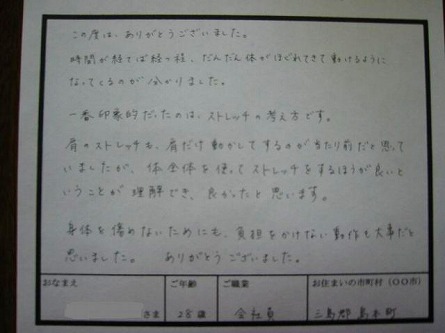 この度は、ありがとうございました。
時間が経てば経つ程、だんだん体がほぐれてきて動けるように
なってくるのが分かりました。
一番印象的だったのは、ストレッチの考え方です。
肩のストレッチも、肩だけ動かしてするのが当たり前だと思って
いましたが、体全体を使ってストレッチをするほうが良いと
いうことが理解でき、良かったと思います。
身体を傷めないためにも、負担をかけない動作も大事だと
思いました。 ありがとうございました。
おなまえ ご年齢 ご職業 お住まいの市町村（〇〇市）
さま 28歳 会社員 三島郡島本町